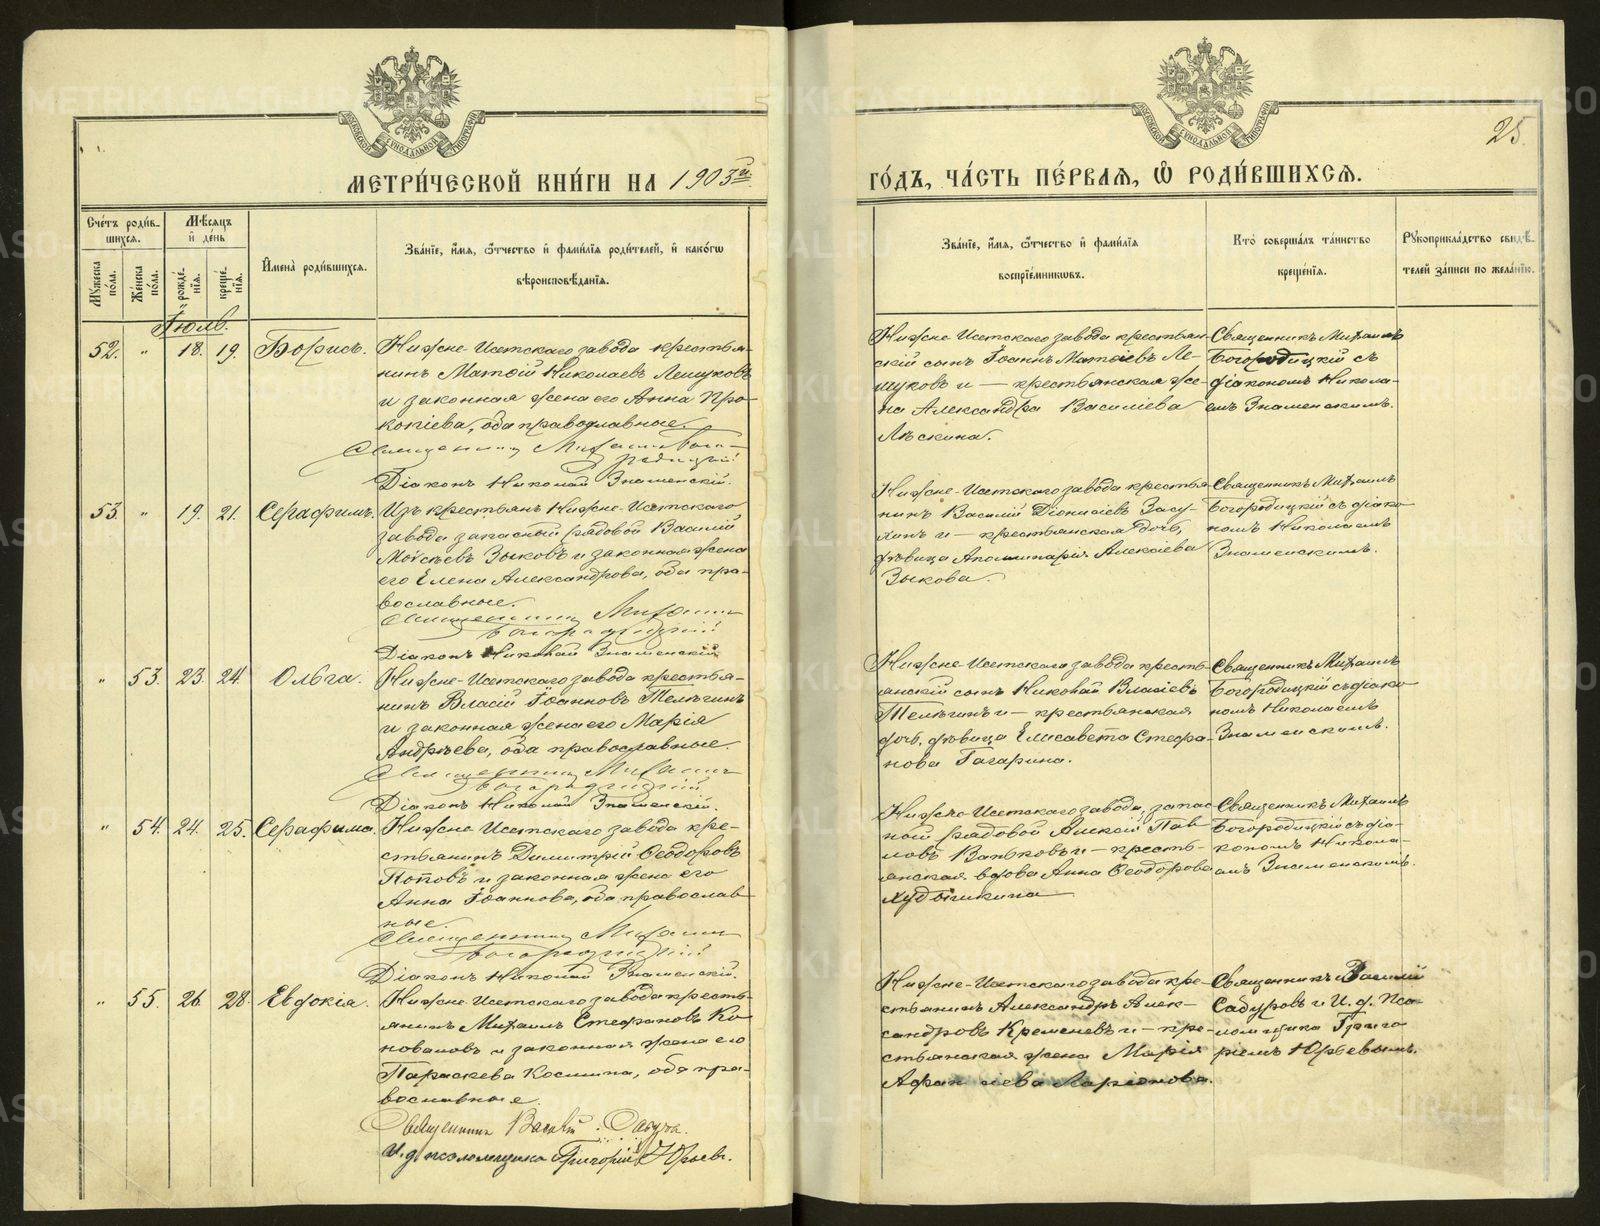 МЕТРИ́ЧЕСКОЙ КНИ́ГИ НА 1903й
ГО́ДЪ, ЧА́СТЬ ПЕ́РВАѦ, Ѡ҆ РОДИ́ВШИХСѦ.
25
Сче́тъ роди́в-
шихся.
Мѣ́сяцъ
и҆ де́нь
И҆мена̀ роди́вшихся.
Зва́нїе, и҆́мя, ѻ҆́тчество и҆ фами́лїя роди́телей, и҆ како́гѡ
вѣроисповѣ́данїя.
Мꙋ́жеска по́ла.
Же́нска по́ла.
рожде́-
нїя.
креще́-
нїя.
Зва́нїе, и҆́мя, ѻ҆́тчество и҆ фами́лїя
воспрїе́мникѡвъ.
Кто̀ соверша́лъ та́инство
креще́нїя.
Рꙋкоприкла́дство свидѣ́-
телей за́писи по жела́нїю.
Іюль.
52. " 18. 19. Борисъ.
Нижне-Исетскаго завода крестья-
нинъ Матѳій Николаевъ Лещуковъ
и законная жена его Анна Про-
копіева, оба православные.
Священникъ Михаилъ Бого-
родицкій
Діаконъ Николай Знаменскій.
Нижне-Исетскаго завода крестьян-
скій сынъ Іоаннъ Матѳіевъ Ле-
щуковъ и — крестьянская же-
на Александра Василіева
Лѣскина.
Священникъ Михаилъ
Богородицкій съ
діакономъ Никола-
емъ Знаменскимъ.
53. " 19. 21. Серафимъ.
Изъ крестьянъ Нижне-Исетскаго
завода запасный рядовой Василій
Моѵсеевъ Зыковъ и законная жена
его Елена Александрова, оба пра-
вославные.
Священникъ Михаилъ
Богородицкій
Діаконъ Николай Знаменскій
Нижне-Исетскаго завода крестья-
нинъ Василій Діонисіевъ Засу-
хинъ и — крестьянская дочь,
дѣвица Аполинарія Алексіева
Зыкова.
Священникъ Михаилъ
Богородицкій съ діако-
номъ Николаемъ
Знаменскимъ.
" 53. 23. 24. Ольга.
Нижне-Исетскаго завода крестья-
нинъ Власій Іоанновъ Телѣгинъ
и законная жена его Марія
Андреева, оба православные.
Священникъ Михаилъ
Богородицкій
Діаконъ Николай Знаменскій.
Нижне-Исетскаго завода кресть-
янскій сынъ Николай Власіевъ
Телѣгинъ и — крестьянская
дочь, дѣвица Елисавета Стефа-
нова Гагарина.
Священникъ Михаилъ
Богородицкій съ діако-
номъ Николаемъ
Знаменскимъ.
" 54. 24. 25. Серафима.
Нижне-Исетскаго завода кре-
стьянинъ Димитрій Ѳеодоровъ
Поповъ и законная жена его
Анна Іоаннова, оба православ-
ные.
Священникъ Михаилъ
Богородицкій
Діаконъ Николай Знаменскій.
Нижне-Исетскаго завода, запас-
ный рядовой Алексій Пав-
ловъ Ваньковъ и — кресть-
янская вдова Анна Ѳеодорова
Худышкина
Священникъ Михаилъ
Богородицкій съ діа-
кономъ Никола-
емъ Знаменскимъ.
" 55. 26. 28. Евдокія.
Нижне-Исетскаго завода кресть-
янинъ Михаилъ Стефановъ Ко-
новаловъ и законная жена его
Параскева Космина, оба пра-
вославные.
Священникъ Василій Сабуровъ.
И. д. псаломщика Григорій Юрьевъ.
Нижне-Исетскаго завода кре-
стьянинъ Александръ Алек-
сандровъ Кременевъ и — кре-
стьянская жена Марія
Афанасіева Ларіонова.
Священникъ Василій
Сабуровъ и И. д. Пса-
ломщика Григо-
ріемъ Юрьевымъ.
METRIKI.GASO-URAL.RU